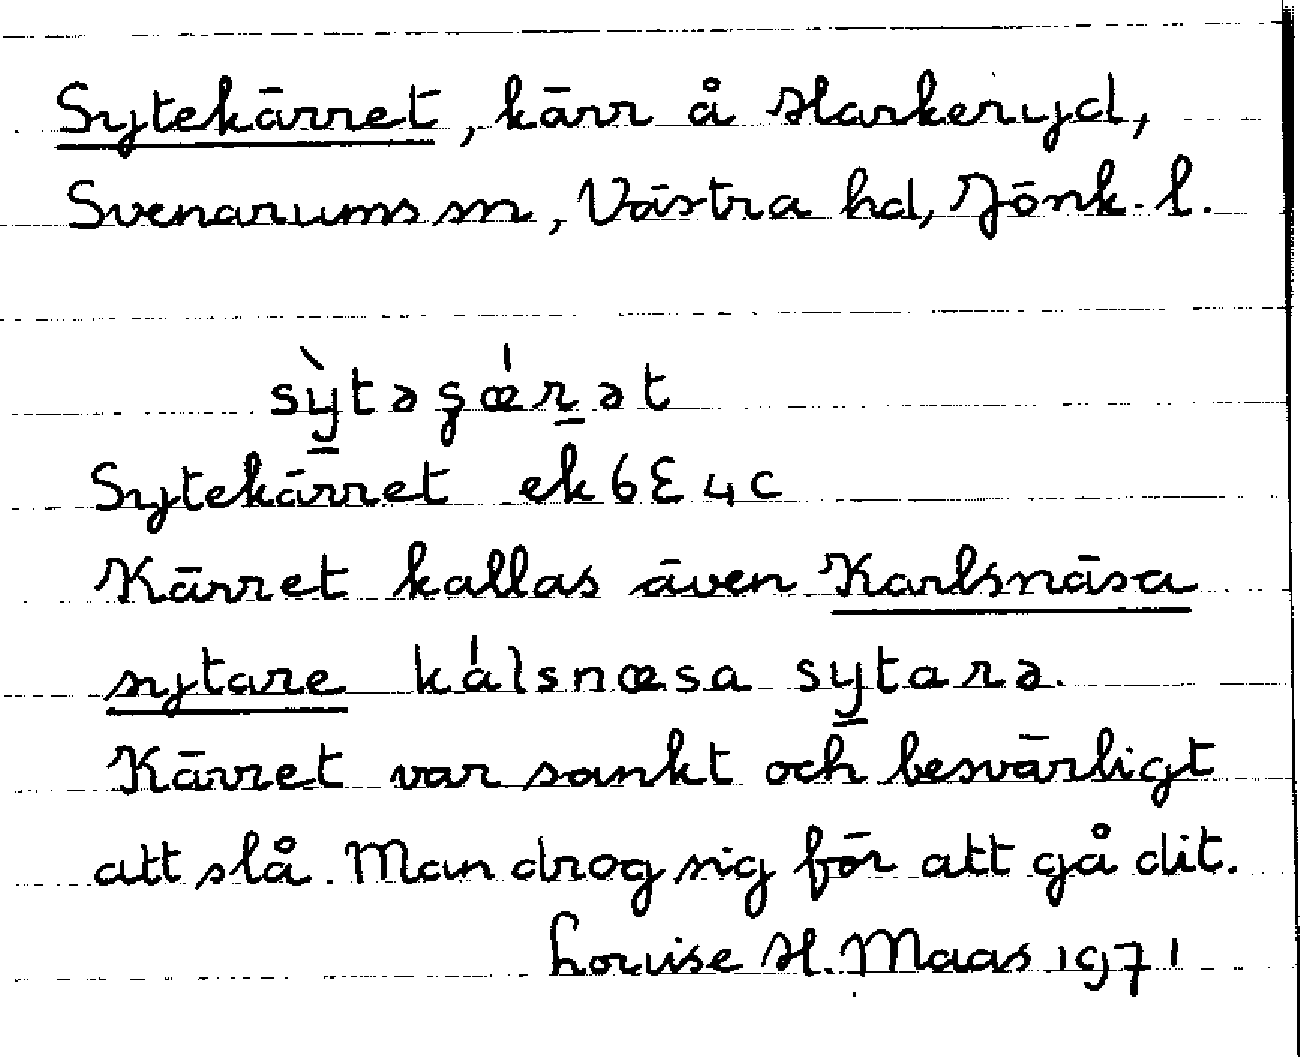 Sytekärret, kärr å Harkeryd,
Svenarums sn, Västra hd, Jönk. l.
sỳ̠təʂœ́r̠ət
Sytekärret ek 6E 4c
Kärret kallas även Karlsnäsa
sytare kálsnœsa sy̠tarə.
Kärret var sankt och besvärligt
att slå. Man drog sig för att gå dit.
Louise H. Maas 1971